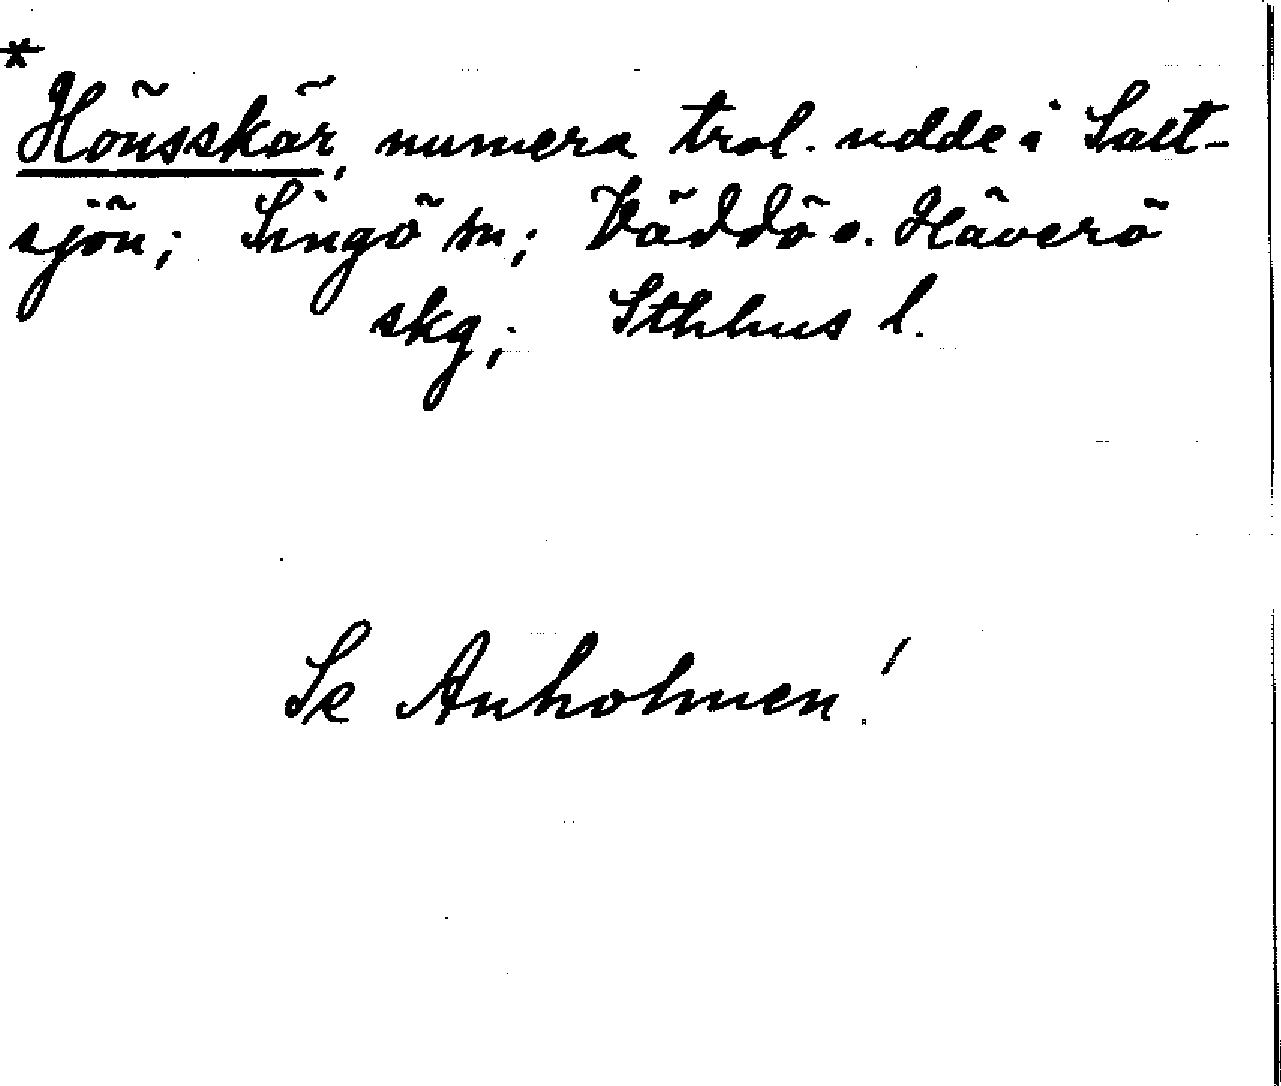 *
Hönsskär, numera trol. udde i Salt-
sjön; Singö sn; Väddö o. Häverö
skg; Sthlms l.
Se Anholmen!